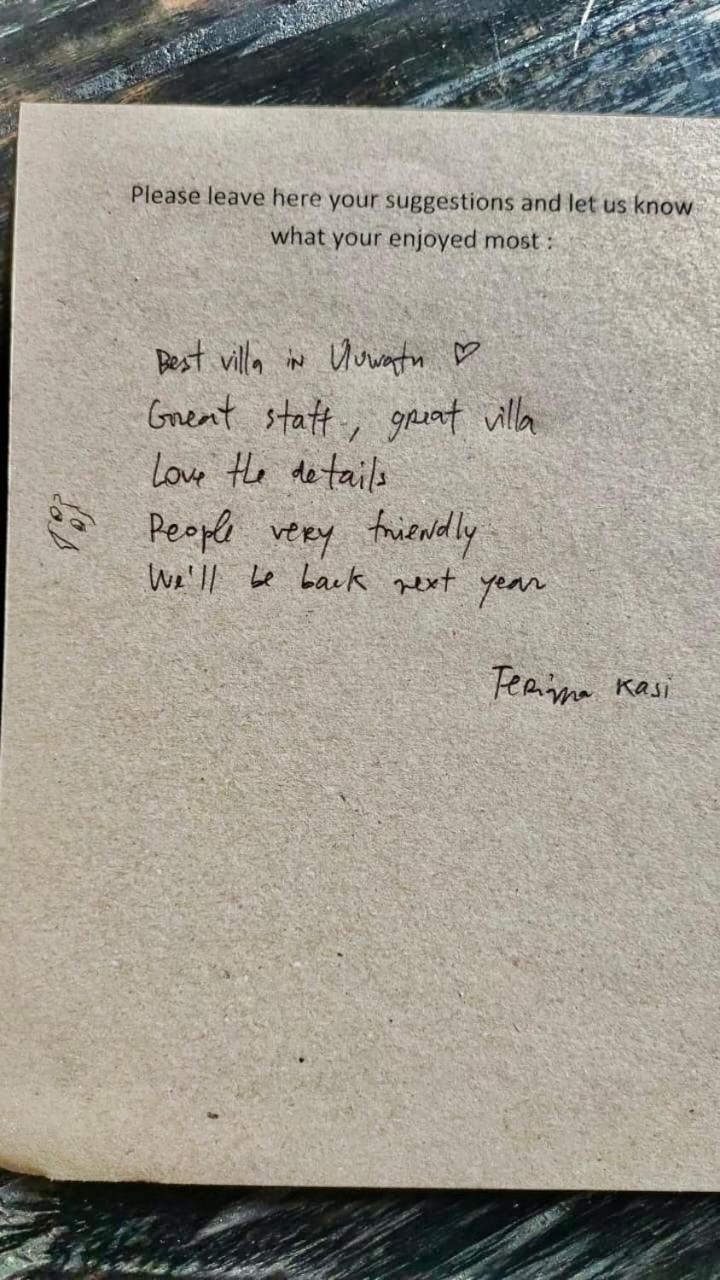 Please leave here your suggestions and let us know
what your enjoyed most :
Best villa in Uluwatu ♡
Great staff, great villa
Love the details
People very friendly
We'll be back next year
Terima Kasi